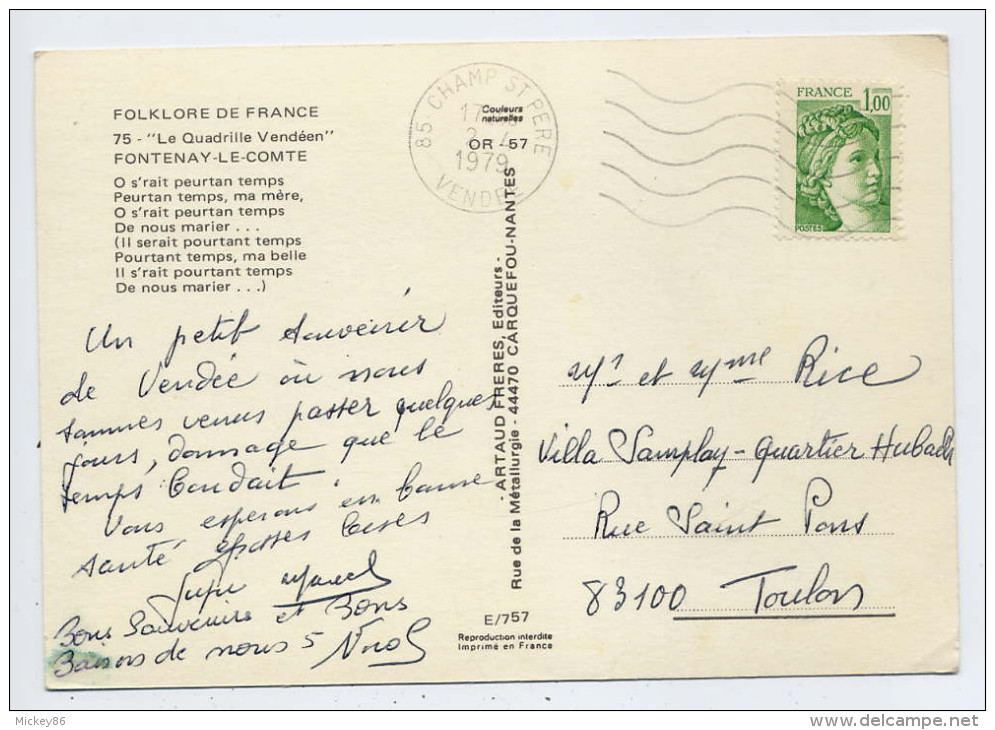 FOLKLORE DE FRANCE
75 - "Le Quadrille Vendéen"
FONTENAY-LE-COMTE
O s'rait peurtan temps
Peurtan temps, ma mère,
O s'rait peurtan temps
De nous marier . . .
(Il serait pourtant temps
Pourtant temps, ma belle
Il s'rait pourtant temps
De nous marier . . .)
Un petit souvenir
de Vendée où nous
sommes venus passer quelques
jours, domage que le
temps boudait
Vous esperons en bonne
santé grosses bises
Marcel
Bons Souvenirs et Bons
Baisers de nous 5 Nicol
85 - CHAMP ST PERE
17
2 - 4
1979
VENDEE
Couleurs
naturelles
OR - 57
- ARTAUD FRERES, Editeurs -
Rue de la Métallurgie - 44470 CARQUEFOU-NANTES
E/757
Reproduction interdite
Imprimé en France
FRANCE 1,00
POSTES
Mr et Mme Rice
Villa Samplay - Quartier Hubach
Rue Saint Pons
83100 Toulon
Mickey86
delcampe.net